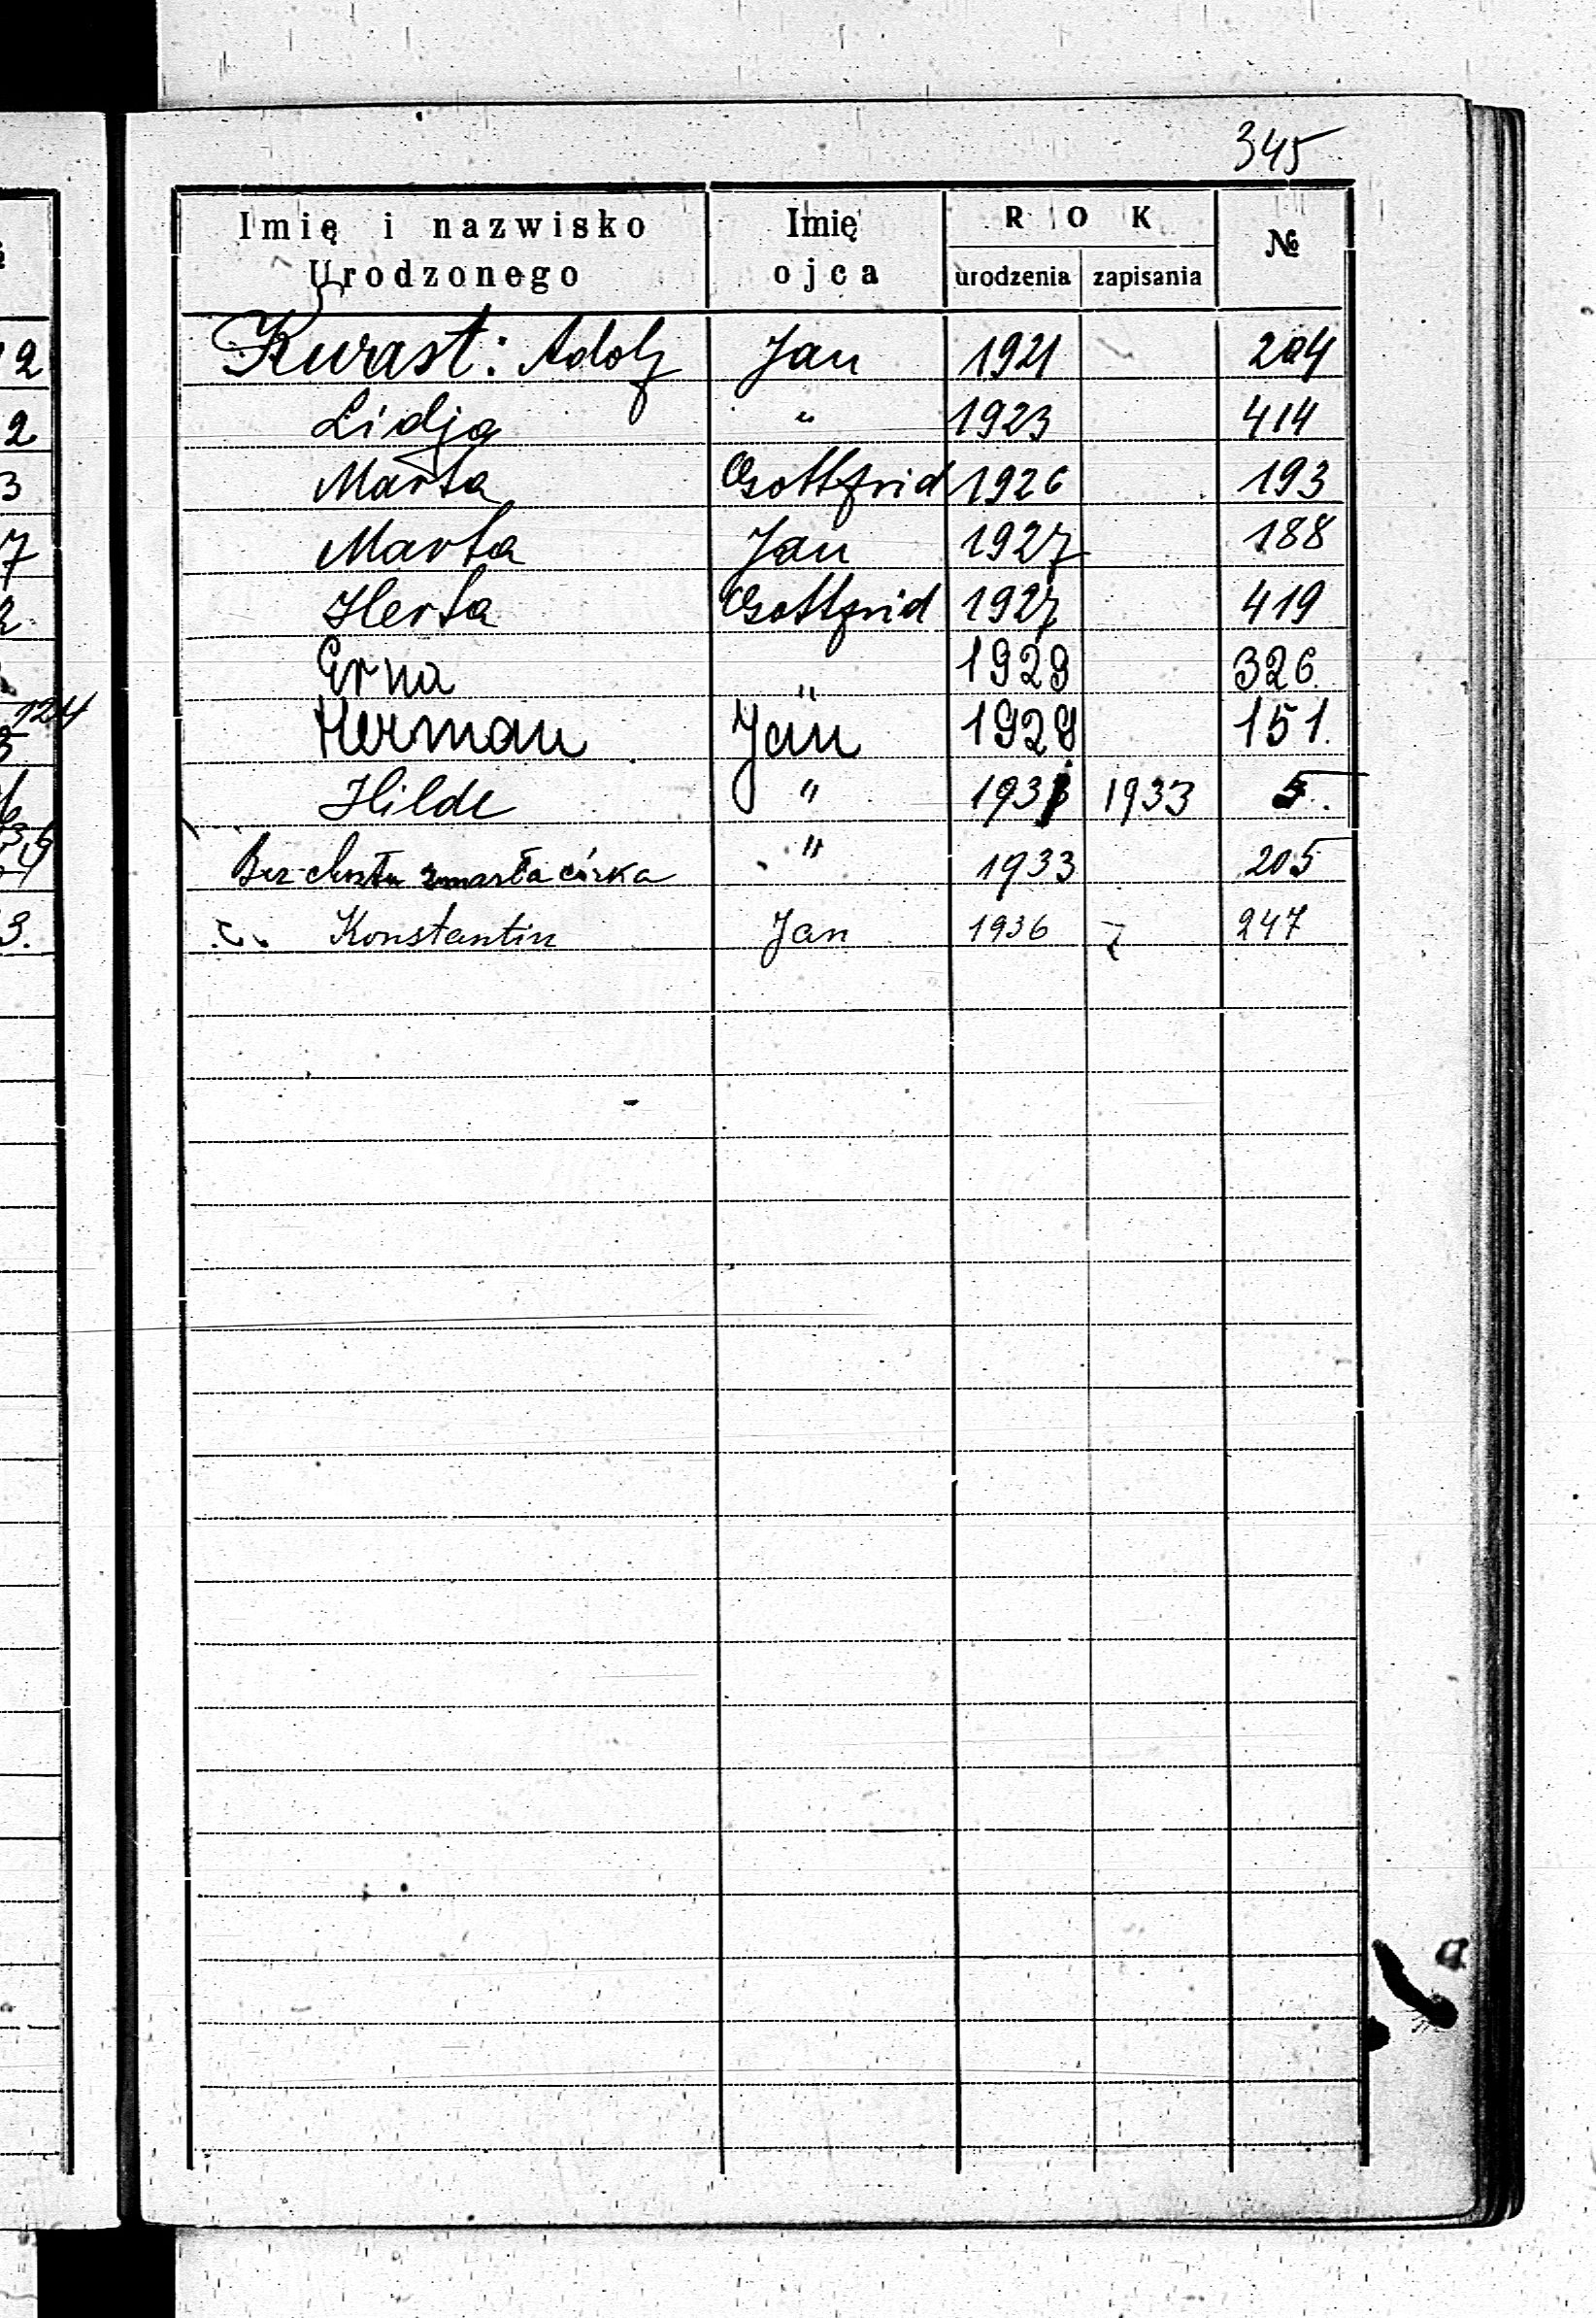 345
Imię i nazwisko Urodzonego | Imię ojca | ROK urodzenia | zapisania | №
Kurast: Adolf Jan 1921 204
Lidja " 1923 414
Marta Gottfrid 1926 193
Marta Jan 1927 188
Herta Gottfrid 1927 419
Erna " 1929 326.
Herman Jan 1929 151.
Hilde " 1933 5.
Bez chrztu zmarła córka " 1933 205
Konstantin Jan 1936 247